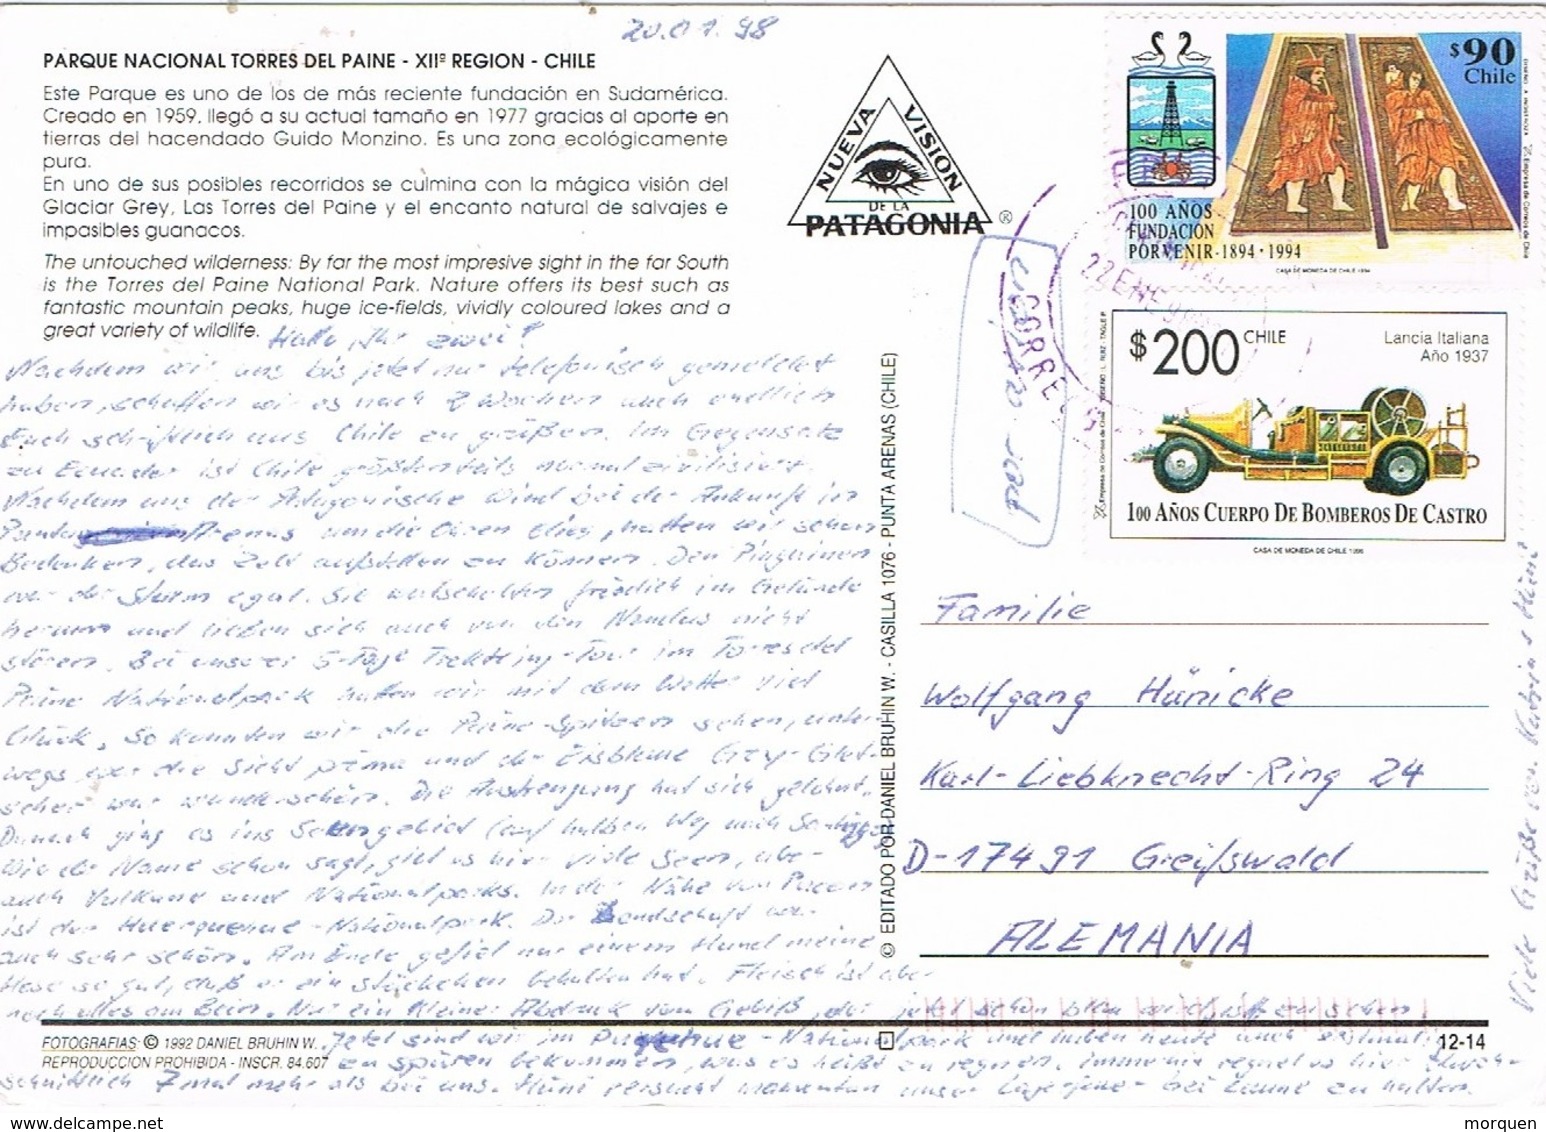 20.01.98
PARQUE NACIONAL TORRES DEL PAINE - XIIª REGION - CHILE
Este Parque es uno de los de más reciente fundación en Sudamérica.
Creado en 1959, llegó a su actual tamaño en 1977 gracias al aporte en
tierras del hacendado Guido Monzino. Es una zona ecológicamente
pura.
En uno de sus posibles recorridos se culmina con la mágica visión del
Glaciar Grey, Las Torres del Paine y el encanto natural de salvajes e
impasibles guanacos.
The untouched wilderness: By far the most impresive sight in the far South
is the Torres del Paine National Park. Nature offers its best such as
fantastic mountain peaks, huge ice-fields, vividly coloured lakes and a
great variety of wildlife.
Hallo, ihr zwei!
Nachdem wir uns bis jetzt nur telefonisch gemeldet
haben, schaffen wir es nach 7 Wochen auch endlich
Euch schriftlich aus Chile zu grüßen. Im Gegensatz
zu Ecuador ist Chile größtenteils normal zivilisiert.
Nachdem uns der Patagonische Wind bei der Ankunft in
Punta Arenas um die Ohren blies, hatten wir schon
Bedenken, das Zelt aufstellen zu können. Den Pinguinen
war der Sturm egal. Sie watschelten friedlich im Gelände
herum und ließen sich auch von den Nandus nicht
stören. Bei unserer 5-Tage Trekking-Tour im Torres del
Paine Nationalpark hatten wir mit dem Wetter viel
Glück. So konnten wir die Paine-Spitzen sehen, unter-
wegs war die Sicht prima und der Eisblaue Grey-Glet-
scher war wunderschön. Die Anstrengung hat sich gelohnt.
Danach ging es ins Seengebiet (auf halben Weg nach Santiago)
Wie der Name schon sagt, gibt es hier viele Seen, aber
auch Vulkane und Nationalparks. In der Nähe von Pucon
ist der Huerquehue-Nationalpark. Die Landschaft war
auch sehr schön. Am Ende gefiel nur einem Hund meine
Hose so gut, daß er ein Stückchen behalten hat. Fleisch ist aber
noch alles am Bein. Nur ein kleiner Abdruck vom Gebiß, der jetzt schon blau wird, ist zu sehen
Jetzt sind wir im Puyehue-Nationalpark und haben heute auch erstmal
zu spüren bekommen, was es heißt zu regnen. Immerhin regnet es hier durch-
schnittlich 7 mal mehr als bei uns. Hüni versucht unser Lagerfeuer bei Laune zu halten.
NUEVA VISION
DE LA
PATAGONIA ®
CORREOS
22 ENE 98
$90
Chile
100 AÑOS
FUNDACION
PORVENIR · 1894 · 1994
Empresa de Correos de Chile
CASA DE MONEDA DE CHILE 1994
$200 CHILE
Lancia Italiana
Año 1937
Empresa de Correos de Chile
100 AÑOS CUERPO DE BOMBEROS DE CASTRO
CASA DE MONEDA DE CHILE 1996
© EDITADO POR DANIEL BRUHIN W. - CASILLA 1076 - PUNTA ARENAS (CHILE)
Familie
Wolfgang Hünicke
Karl-Liebknecht-Ring 24
D-17491 Greifswald
ALEMANIA
Viele Grüße von Katrin + Hüni
FOTOGRAFIAS: © 1992 DANIEL BRUHIN W.
REPRODUCCION PROHIBIDA - INSCR. 84.607
12-14
morquen